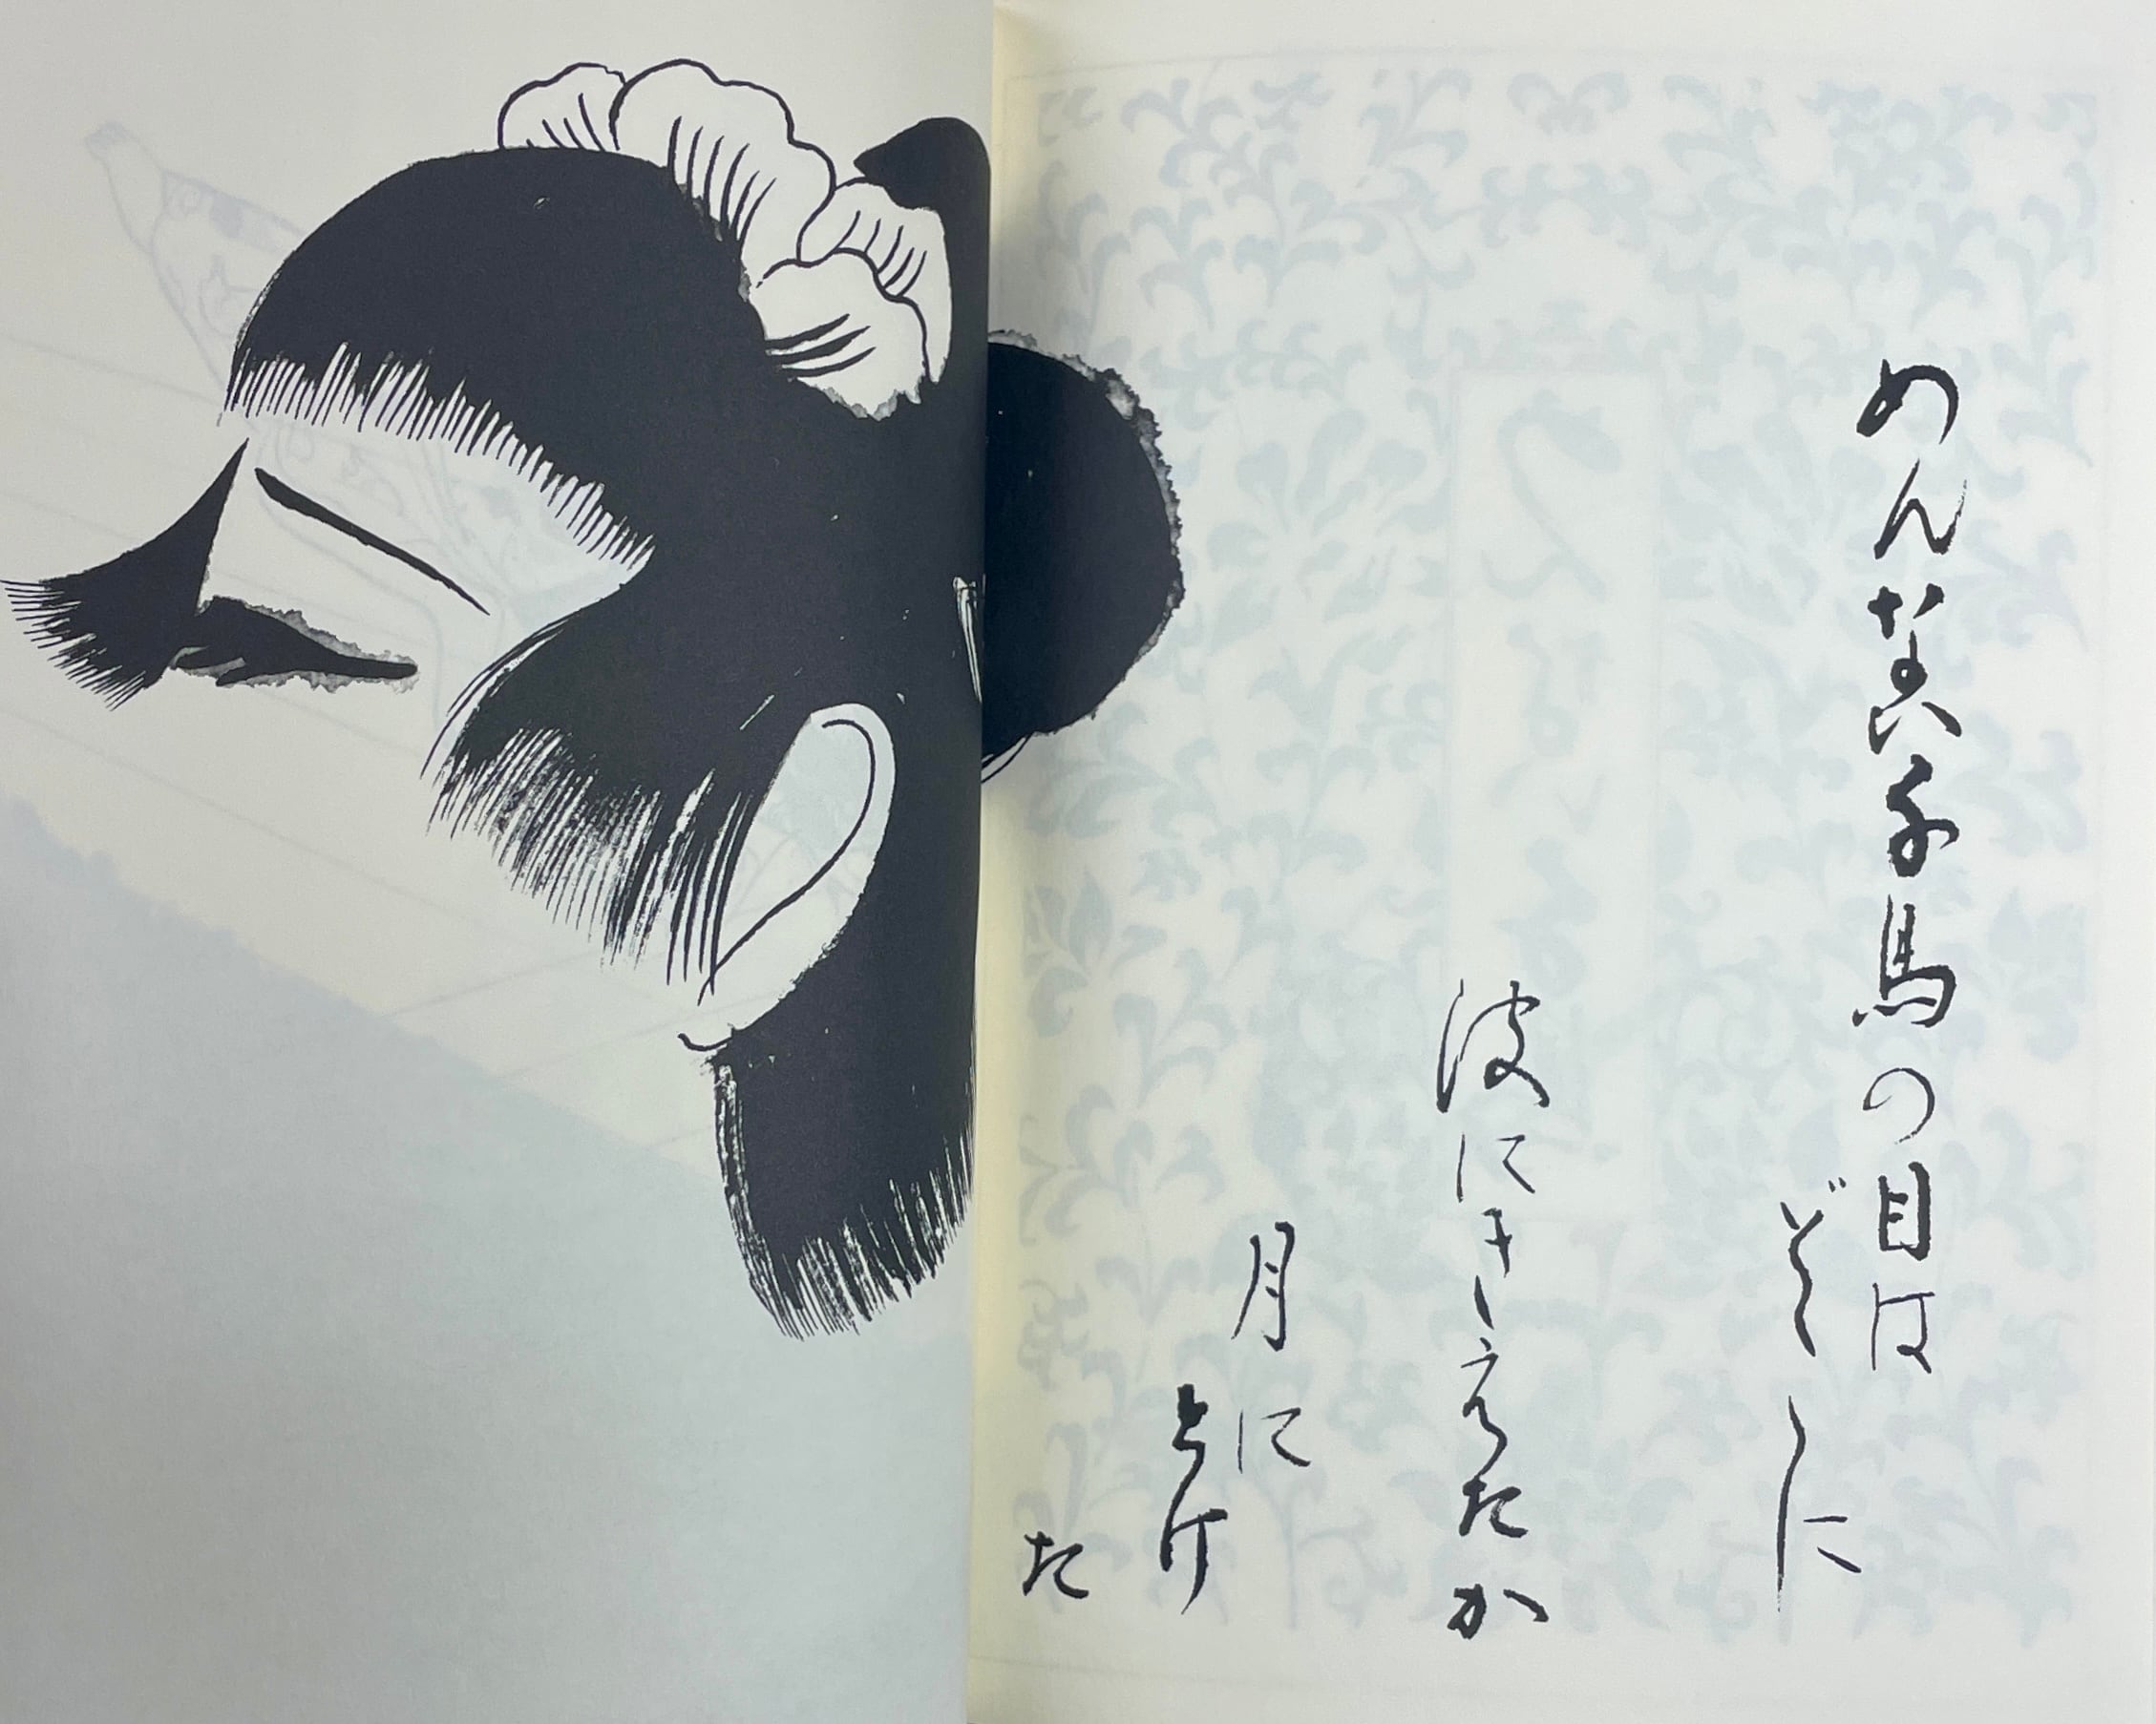 めんない千鳥の目は
波にきえたか
月に
とけ
た